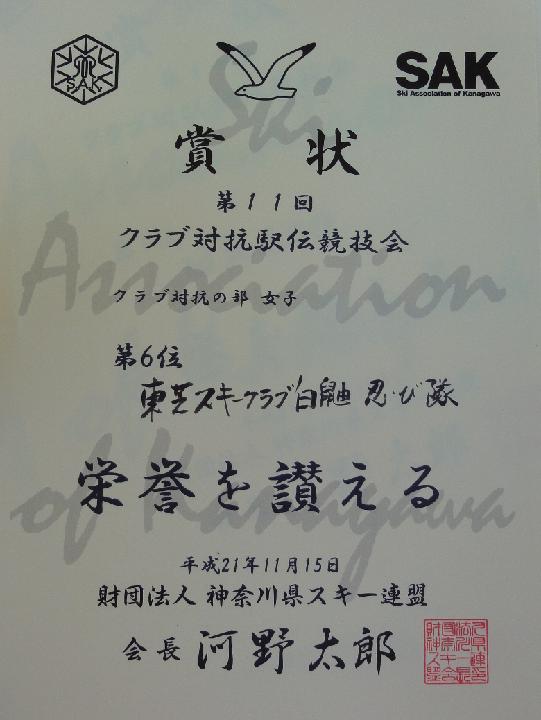 SAK
SAK
Ski Association of Kanagawa
Ski
Association
of Kanagawa
賞状
第11回
クラブ対抗駅伝競技会
クラブ対抗の部 女子
第6位
東芝スキークラブ白鼬 忍び隊
栄誉を讃える
平成21年11月15日
財団法人 神奈川県スキー連盟
会長 河野太郎